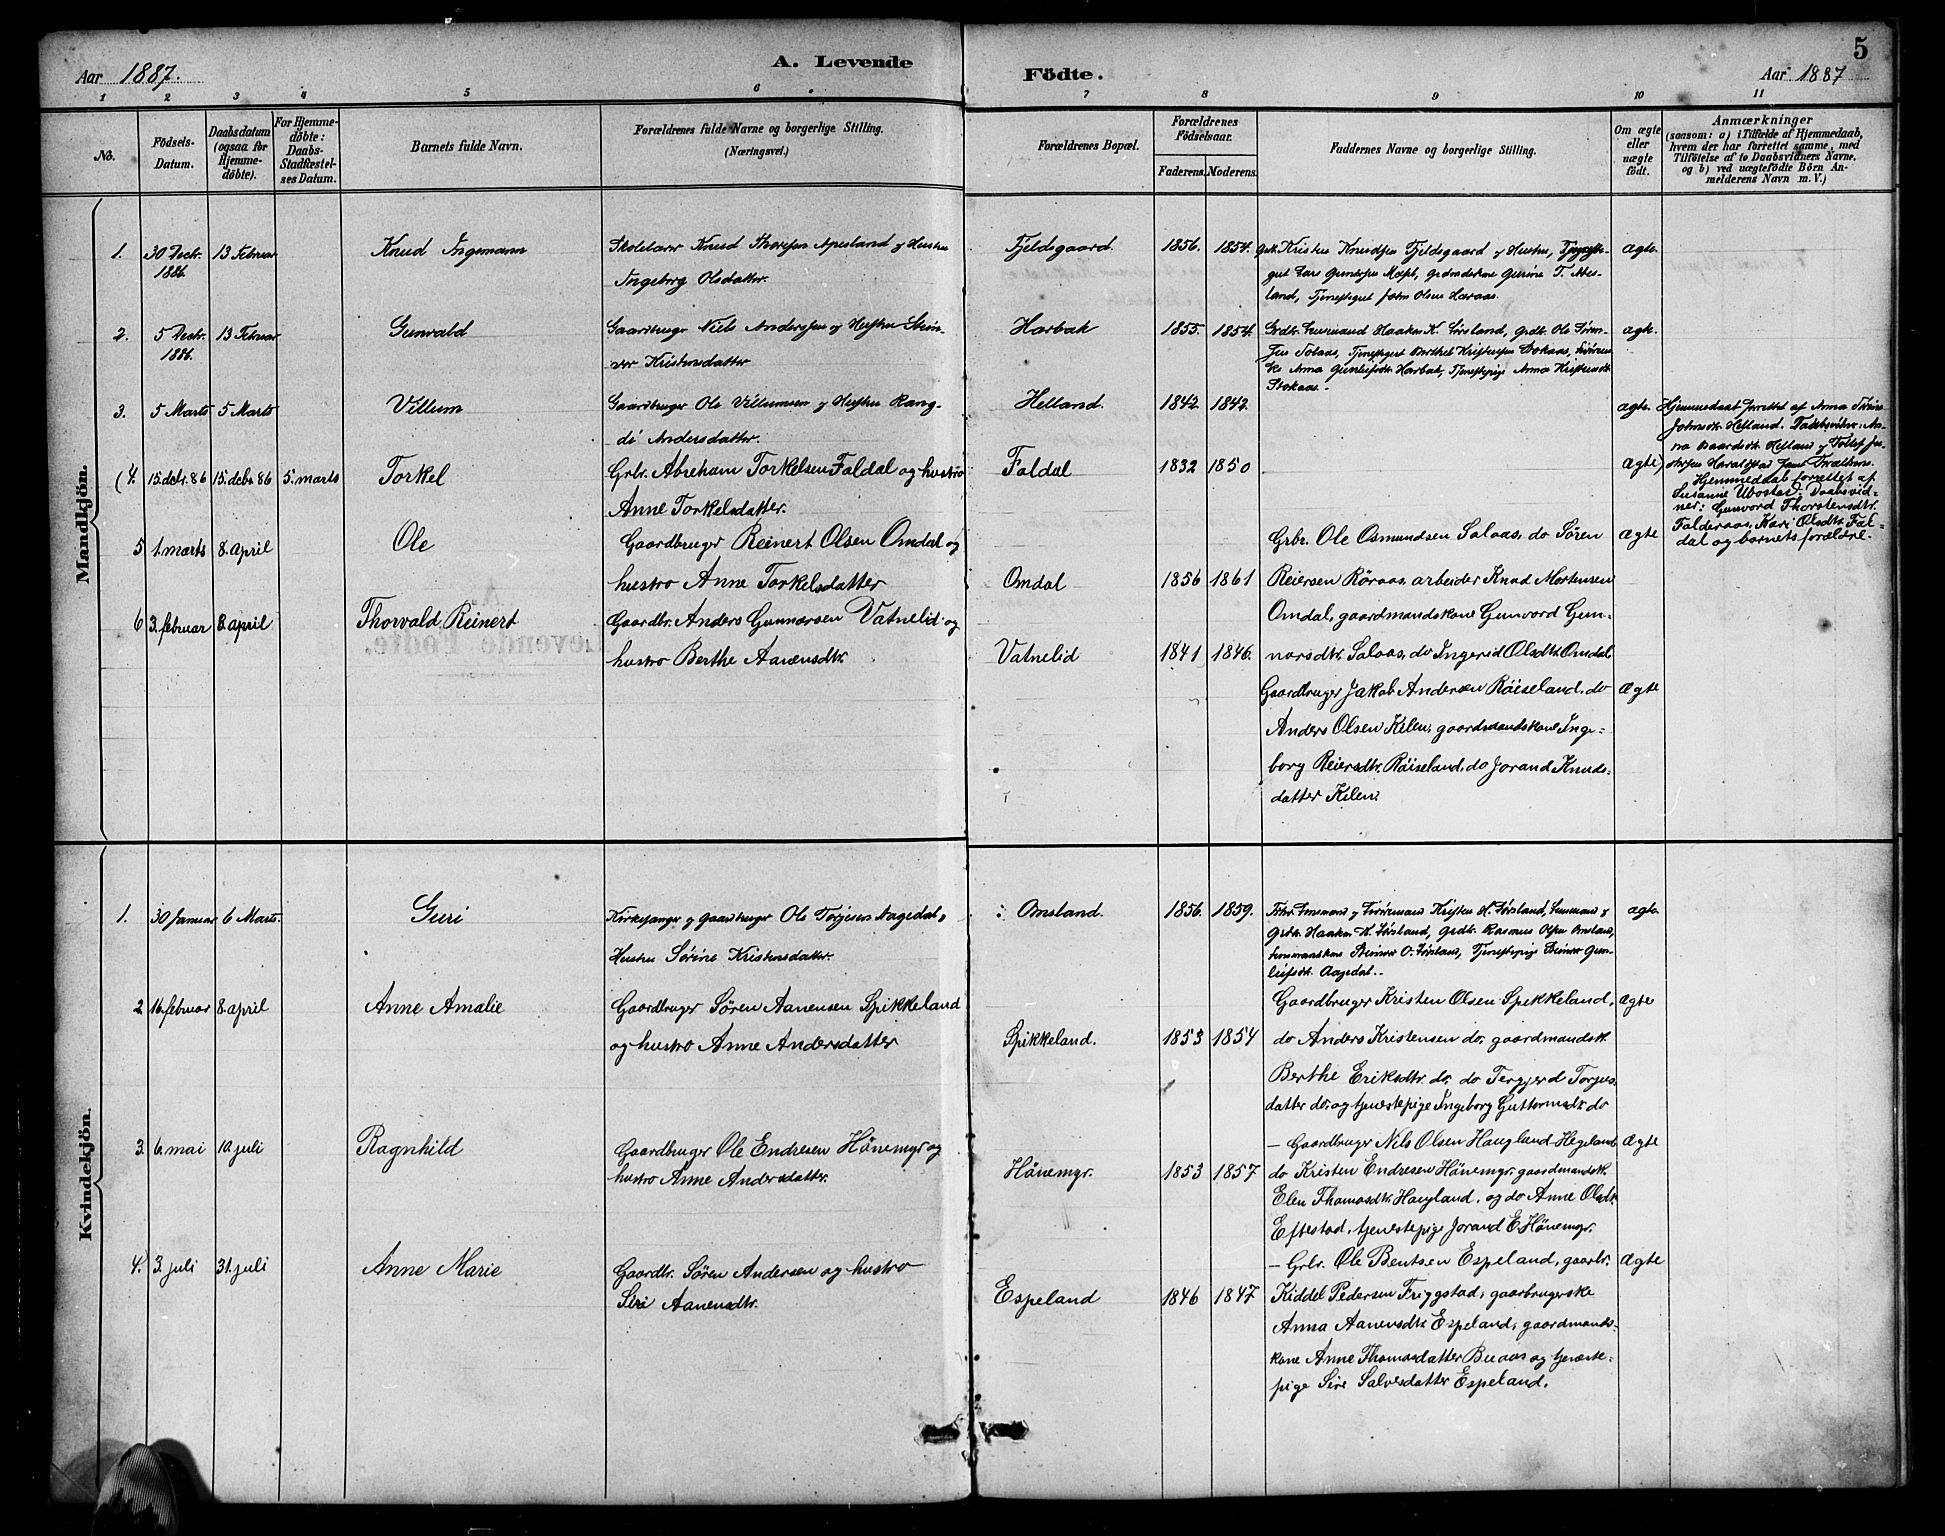 Aar 1887.
A. Levende
Födte.
Aar 1887
5
1 2 3 4 5 6 7 8 9 10 11
No.
Födsels-
Datum.
Daabsdatum
(ogsaa for
Hjemme-
döbte).
For Hjemme-
döbte:
Daabs-
Stadfæstel-
ses Datum.
Barnets fulde Navn.
Forældrenes fulde Navne og borgerlige Stilling.
(Næringsvei.)
Forældrenes Bopæl.
Forældrenes
Födselsaar.
Faderens. Moderens.
Faddernes Navne og borgerlige Stilling.
Om ægte
eller
uægte
födt.
Anmærkninger
(saasom: a) i Tilfælde af Hjemmedaab,
hvem der har forrettet samme, med
Tilföielse af to Daabsvidners Navne,
og b) ved uægtefödte Börn An-
melderens Navn m. V.)
Mandkjön.
1. 30 Decbr. 1886. 13 Februar
Knud Ingemann
Skolelærer Knud Thorsen Apesland og Hustru
Ingeborg Olsdatter.
Fjeldsgaard. 1856. 1854.
Kristen Knudsen Fjeldsgaard og Hustru,
land, Tjenestegut John Olsen Haraas.
ægte.
2. 5 Decbr. 1886. 13 Februar
Gunvald
Gaardbruger Niels Anderssen og Hustru Stein-
vor Kristensdatter
Harbak 1855. 1854.
Haaken K. Lörsland, Grdb. Ole Sören-
Stokaas.
ægte.
3. 5 Marts 5 Marts
Villum
Gaardbruger Ole Villumsen og Hustru Rang-
di Andersdatter.
Helland. 1842. 1842.
ægte.
Hjemmedaab forrettet af Anna
Johnsdtr. Helland. Daabsvidner: An-
(4. 15. decbr. 86 15. decbr. 86 5. marts
Torkel
Grbr. Abreham Torkelsen Faldal og hustro
Anne Torkelsdatter.
Faldal 1832 1850
ægte)
Hjemmedaab forrettet af
Susanne Ubostad. Daabsvid-
ner: Gunvord Thorstensdtr.
Falderaas, Kari Olsdtr. Fal-
dal og barnets forældre.
5 1. marts 8. april
Ole
Gaardbruger Reinert Olsen Omdal og
hustro Anne Torkelsdatter
Omdal 1856 1861
Grbr. Ole Osmundsen Salaas, do Sören
Reiersen Röraas, arbeider Knud Mortensen
Omdal, gaardmandskone Gunvord Gun-
narsdtr. Salaas, do Ingerid Olsdtr. Omdal
ægte
6 3. februar 8. april
Thorvald Reinert
Gaardbr. Anders Gunnarsen Vatnelid og
hustro Berthe Aanensdtr.
Vatnelid 1841 1846.
Gaardbruger Jakob Andersen Röiseland, do
Anders Olsen Kilen, gaardmandskone Inge-
borg Reiersdtr. Röiseland, do Jorand Knuds-
datter Kilen.
ægte
Kvindekjön.
1. 30 Januar 6 Marts.
Guri
Kirkesanger og Gaardbruger Ole Torjesen Aagedal,
Hustru Sörine Kristensdatter.
Omsland. 1856. 1859.
Kristen H. Lörsland,
Haaken K. Lörsland, Grdb. Rasmus Olsen Omsland,
Steinvor O. Lörsland, Tjenestepige Steinvor Gun-
leifsdtr. Aagedal.
ægte.
2 16. februar 8. april
Anne Amalie
Gaardbruger Sören Aanensen Spikkeland
og hustro Anne Andersdatter
Spikkeland. 1853 1854
Gaardbruger Kristen Olsen Spikkeland,
do Anders Kristensen do, gaardmandsk.
Berthe Eriksdtr. do, do Tergjerd Torjus-
datter do, og tjenestepige Ingeborg Guttormsdtr. do
ægte
3. 6. mai 10. juli
Ragnhild
Gaardbruger Ole Endresen Hönemyr og
hustro Anne Andersdatter.
Hönemyr. 1853 1857
– Gaardbruger Nils Olsen Haugland Hegeland,
do Kristen Endresen Hönemyr, gaardmandsk.
Elen Thomasdtr. Haugland, og do Anne Olsdtr.
Eftestad, tjenestepige Jorand E. Hönemyr.
ægte
4. 3. juli 31. juli
Anne Marie
Gaardbr. Sören Andersen og hustro
Siri Aanensdtr.
Espeland 1846 1847
– Grbr. Ole Bentsen Espeland, gaarbr.
Kiddel Pedersen Friggstad, gaarbrugerske
Anna Aanensdtr. Espeland, gaardmands-
kone Anne Thomasdatter Buaas og tjeneste-
pige Siri Salvesdatter Espeland.
ægte